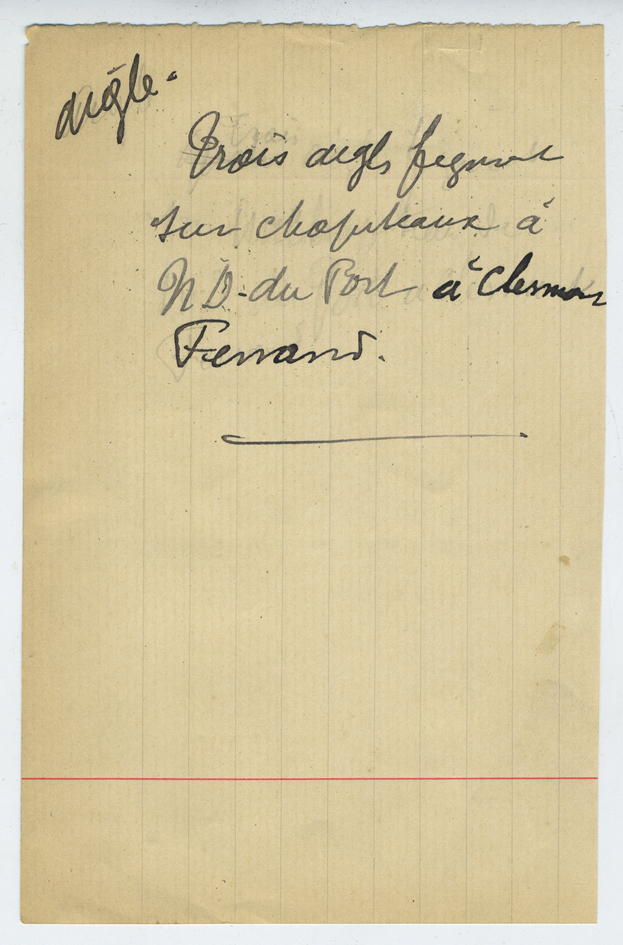 aigle.
Trois aigls figurent
sur chapiteaux à
N.D. du Port à Clermont
Ferrand.